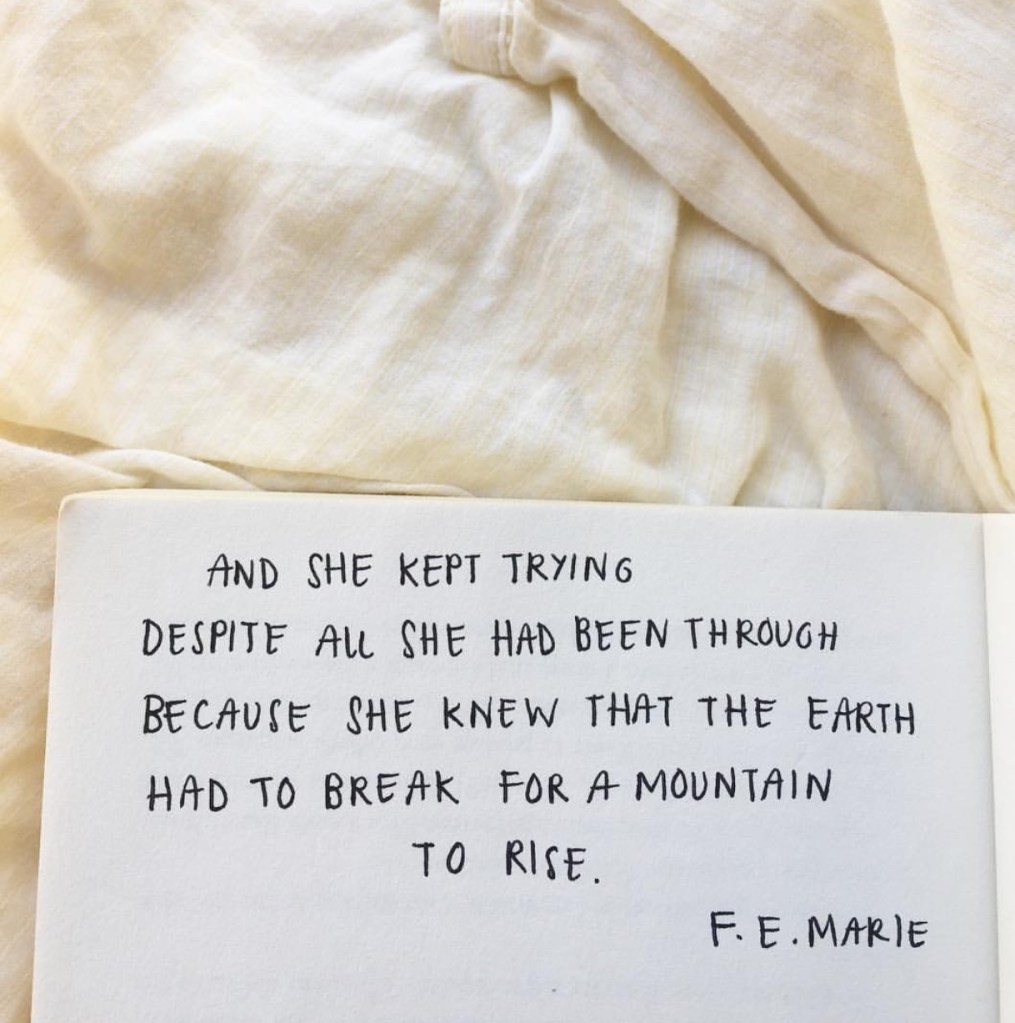 AND SHE KEPT TRYING
DESPITE ALL SHE HAD BEEN THROUGH
BECAUSE SHE KNEW THAT THE EARTH
HAD TO BREAK FOR A MOUNTAIN
TO RISE.
F. E. MARIE